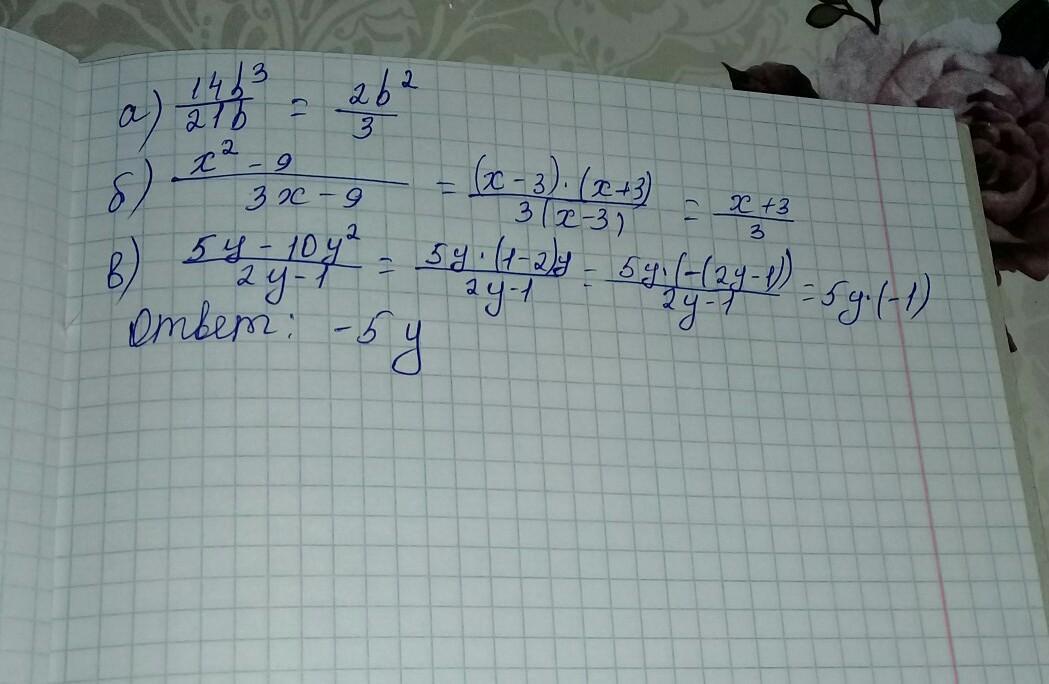 а) 14b³/21b = 2b²/3
б) x² - 9/3x - 9 = (x - 3)·(x+3)/3(x-3) = x+3/3
в) 5y - 10y²/2y - 1 = 5y·(1-2)y/2y-1 = 5y·(-(2y-1))/2y-1 = 5y·(-1)
Ответ: -5y